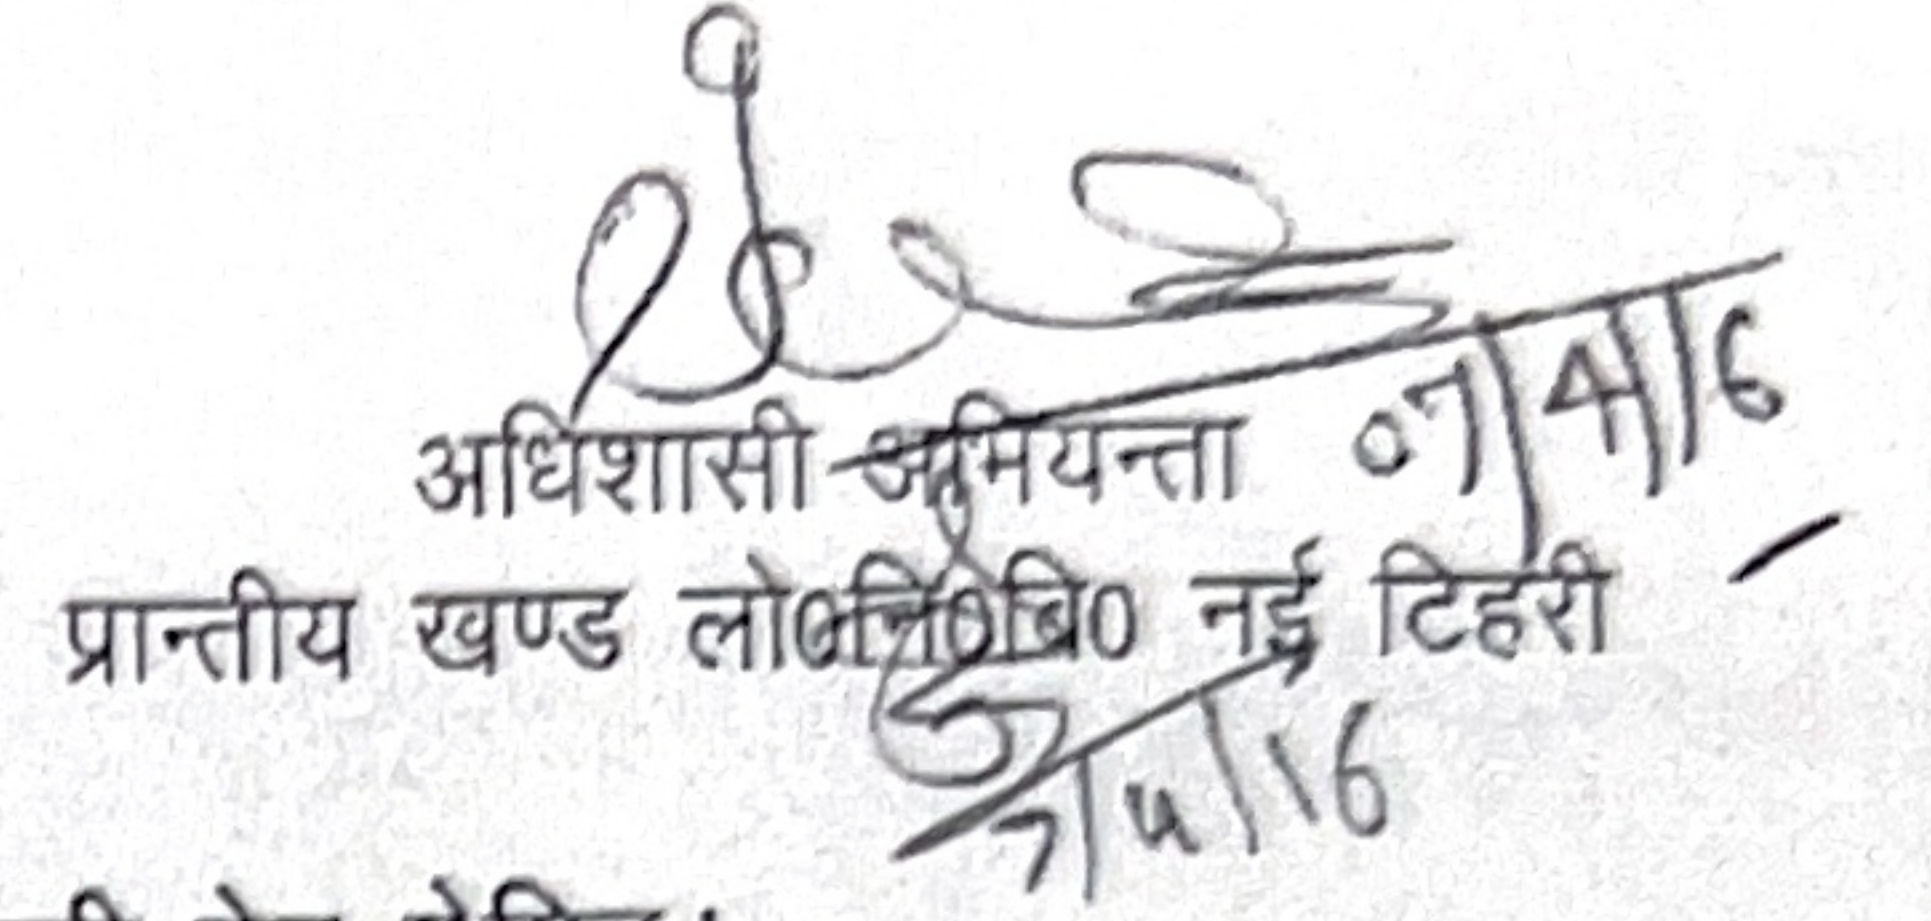 अधिशासी अभियन्ता 07/4/16
प्रान्तीय खण्ड लो०नि०वि० नई टिहरी
7/4/16